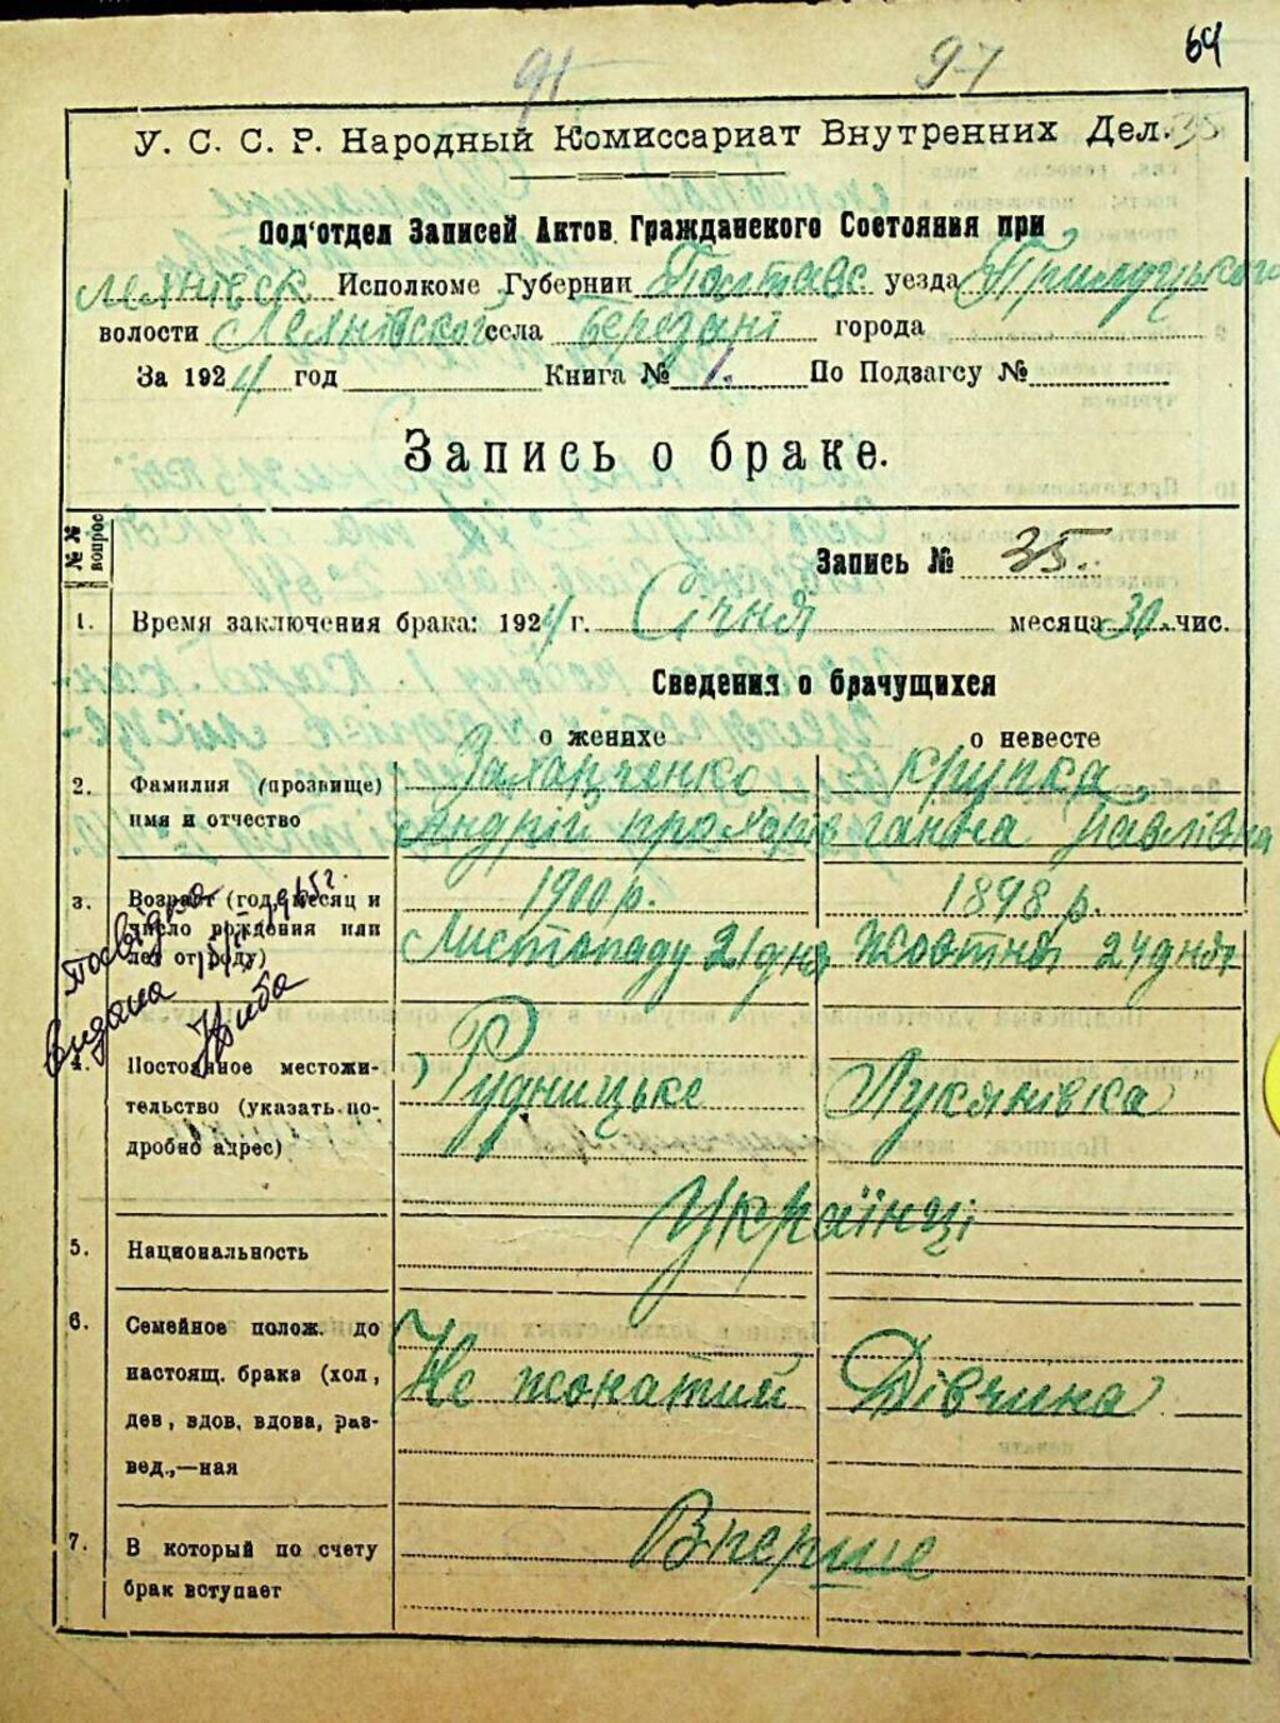 91 97 64
У. С. С. Р. Народный Комиссариат Внутренних Дел. 35
Под'отдел Записей Актов Гражданского Состояния при
Исполкоме Губернии Полтавс уезда Прилуцького
волости села Березані города
За 1924 год Книга № 1. По Подзагсу №
Запись о браке.
№№ вопрос
Запись № 35.
1. Время заключения брака: 1924 г. Січня месяца 30 чис.
Сведения о брачущихся
о женихе о невесте
2. Фамилия (прозвище) Захарченко Крупка
имя и отчество Андрій Прохорів Ганна Павлівна
3. Возраст (год, месяц и 1900 р. 1898 р.
число рождения или Листопаду 21 дня Жовтня 24 дня
лет от роду)
видана
4. Постоянное местожи-
тельство (указать по- Рудницьке Лукянівка
дробно адрес)
Українці
5. Национальность
6. Семейное полож. до
настоящ. брака (хол, Не жонатий Дівчина
дев, вдов, вдова, раз-
вед.,—ная
7. В который по счету Вперше
брак вступает